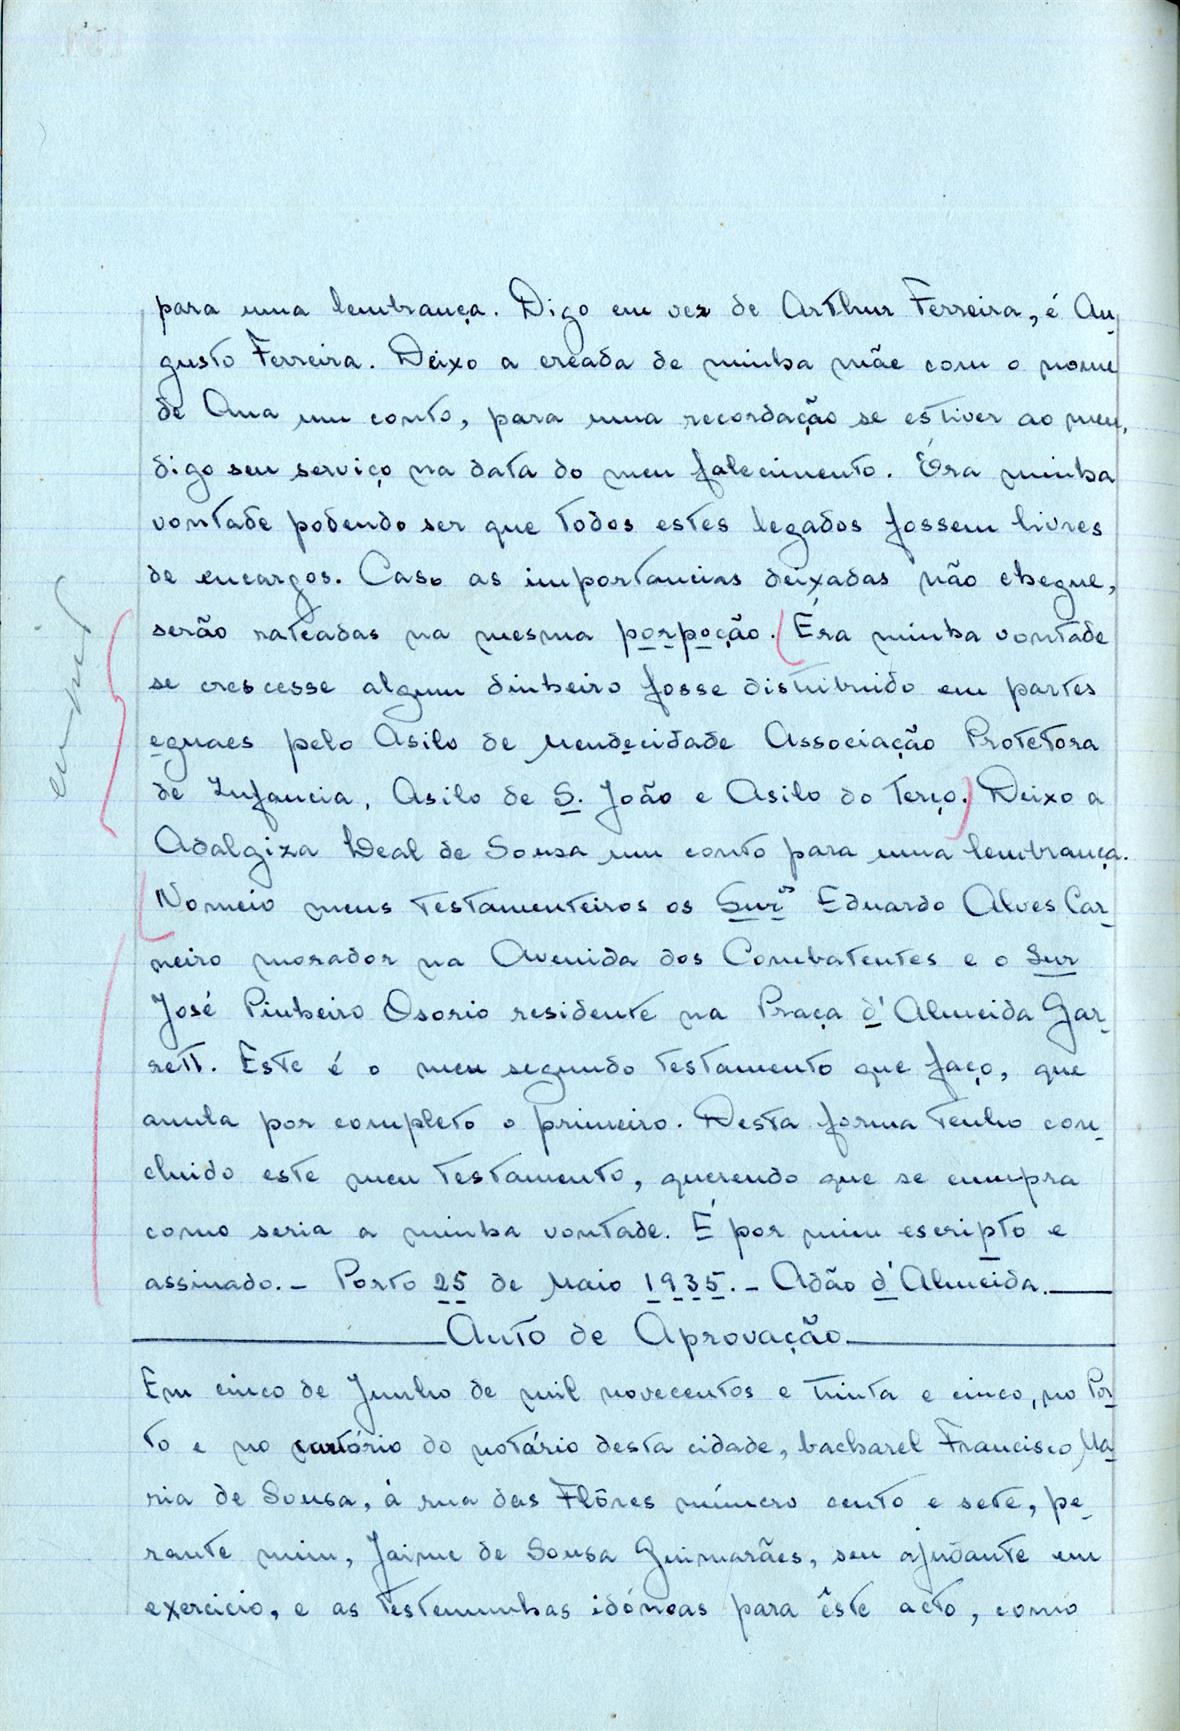 para uma lembrança. Digo em vez de Arthur Ferreira, é Au-
gusto Ferreira. Deixo a creada de minha mãe com o nome
de Ana um conto, para uma recordação se estiver ao meu,
digo seu serviço na data do meu falecimento. Éra minha
vontade podendo ser que todos estes legados fossem livres
de encargos. Caso as importancias deixadas não chegue,
serão rateadas na mesma porpoção. Éra minha vontade
se crescesse algum dinheiro fosse distribuido em partes
eguaes pelo Asilo de Mendecidade Associação Protetora
de Infancia, Asilo de S. João e Asilo do Terço. Deixo a
Adalgiza Deal de Sousa um conto para uma lembrança.
Nomeio meus testamenteiros os Snrs Eduardo Alves Car-
neiro morador na Avenida dos Combatentes e o Snr
José Pinheiro Osorio residente na Praça d'Almeida Gar-
rett. Este é o meu segundo testamento que faço, que
anula por completo o primeiro. Desta forma tenho con-
cluido este meu testamento, querendo que se cumpra
como seria a minha vontade. É por mim escripto e
assinado.- Porto 25 de Maio 1935.- Adão d'Almeida.
Auto de Aprovação
Em cinco de Junho de mil novecentos e trinta e cinco, no Por-
to e no cartório do notário desta cidade, bacharel Francisco Ma-
ria de Sousa, á rua das Flôres número cento e sete, pe-
rante mim, Jaime de Sousa Guimarães, seu ajudante em
exercicio, e as testemunhas idóneas para êste acto, como